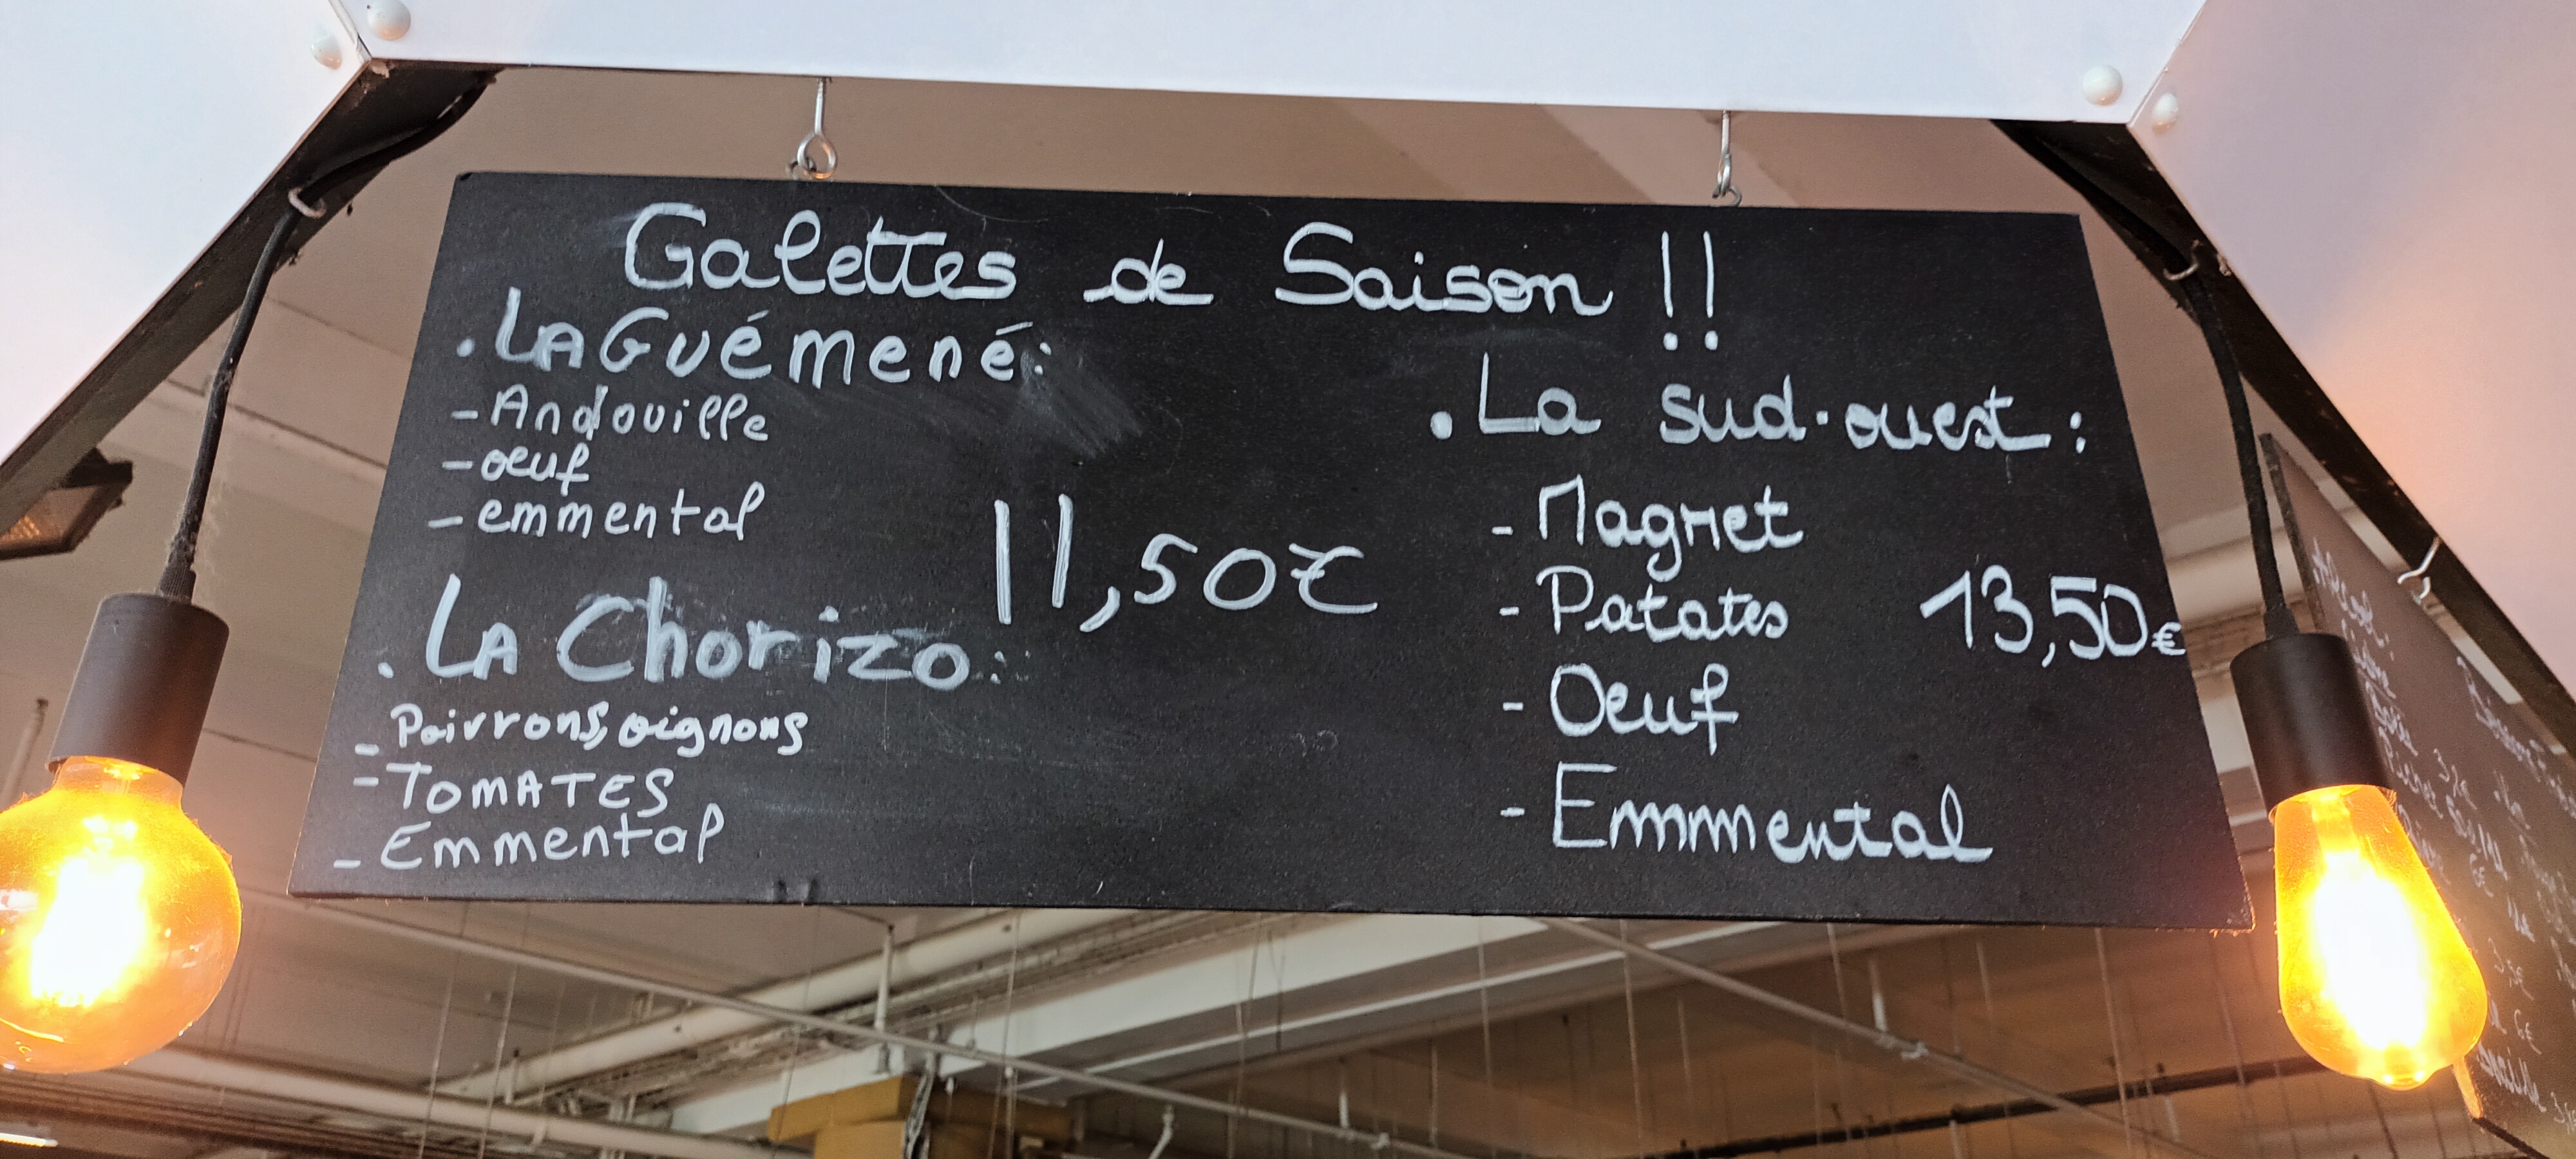 Galettes de Saison !!
. LA Guémené:
- Andouille
- oeuf
- emmental
11,50€
. LA Chorizo:
- Poivrons, oignons
- TOMATES
- Emmental
. La sud-ouest :
- Magret
- Patates
- Oeuf
- Emmental
13,50€